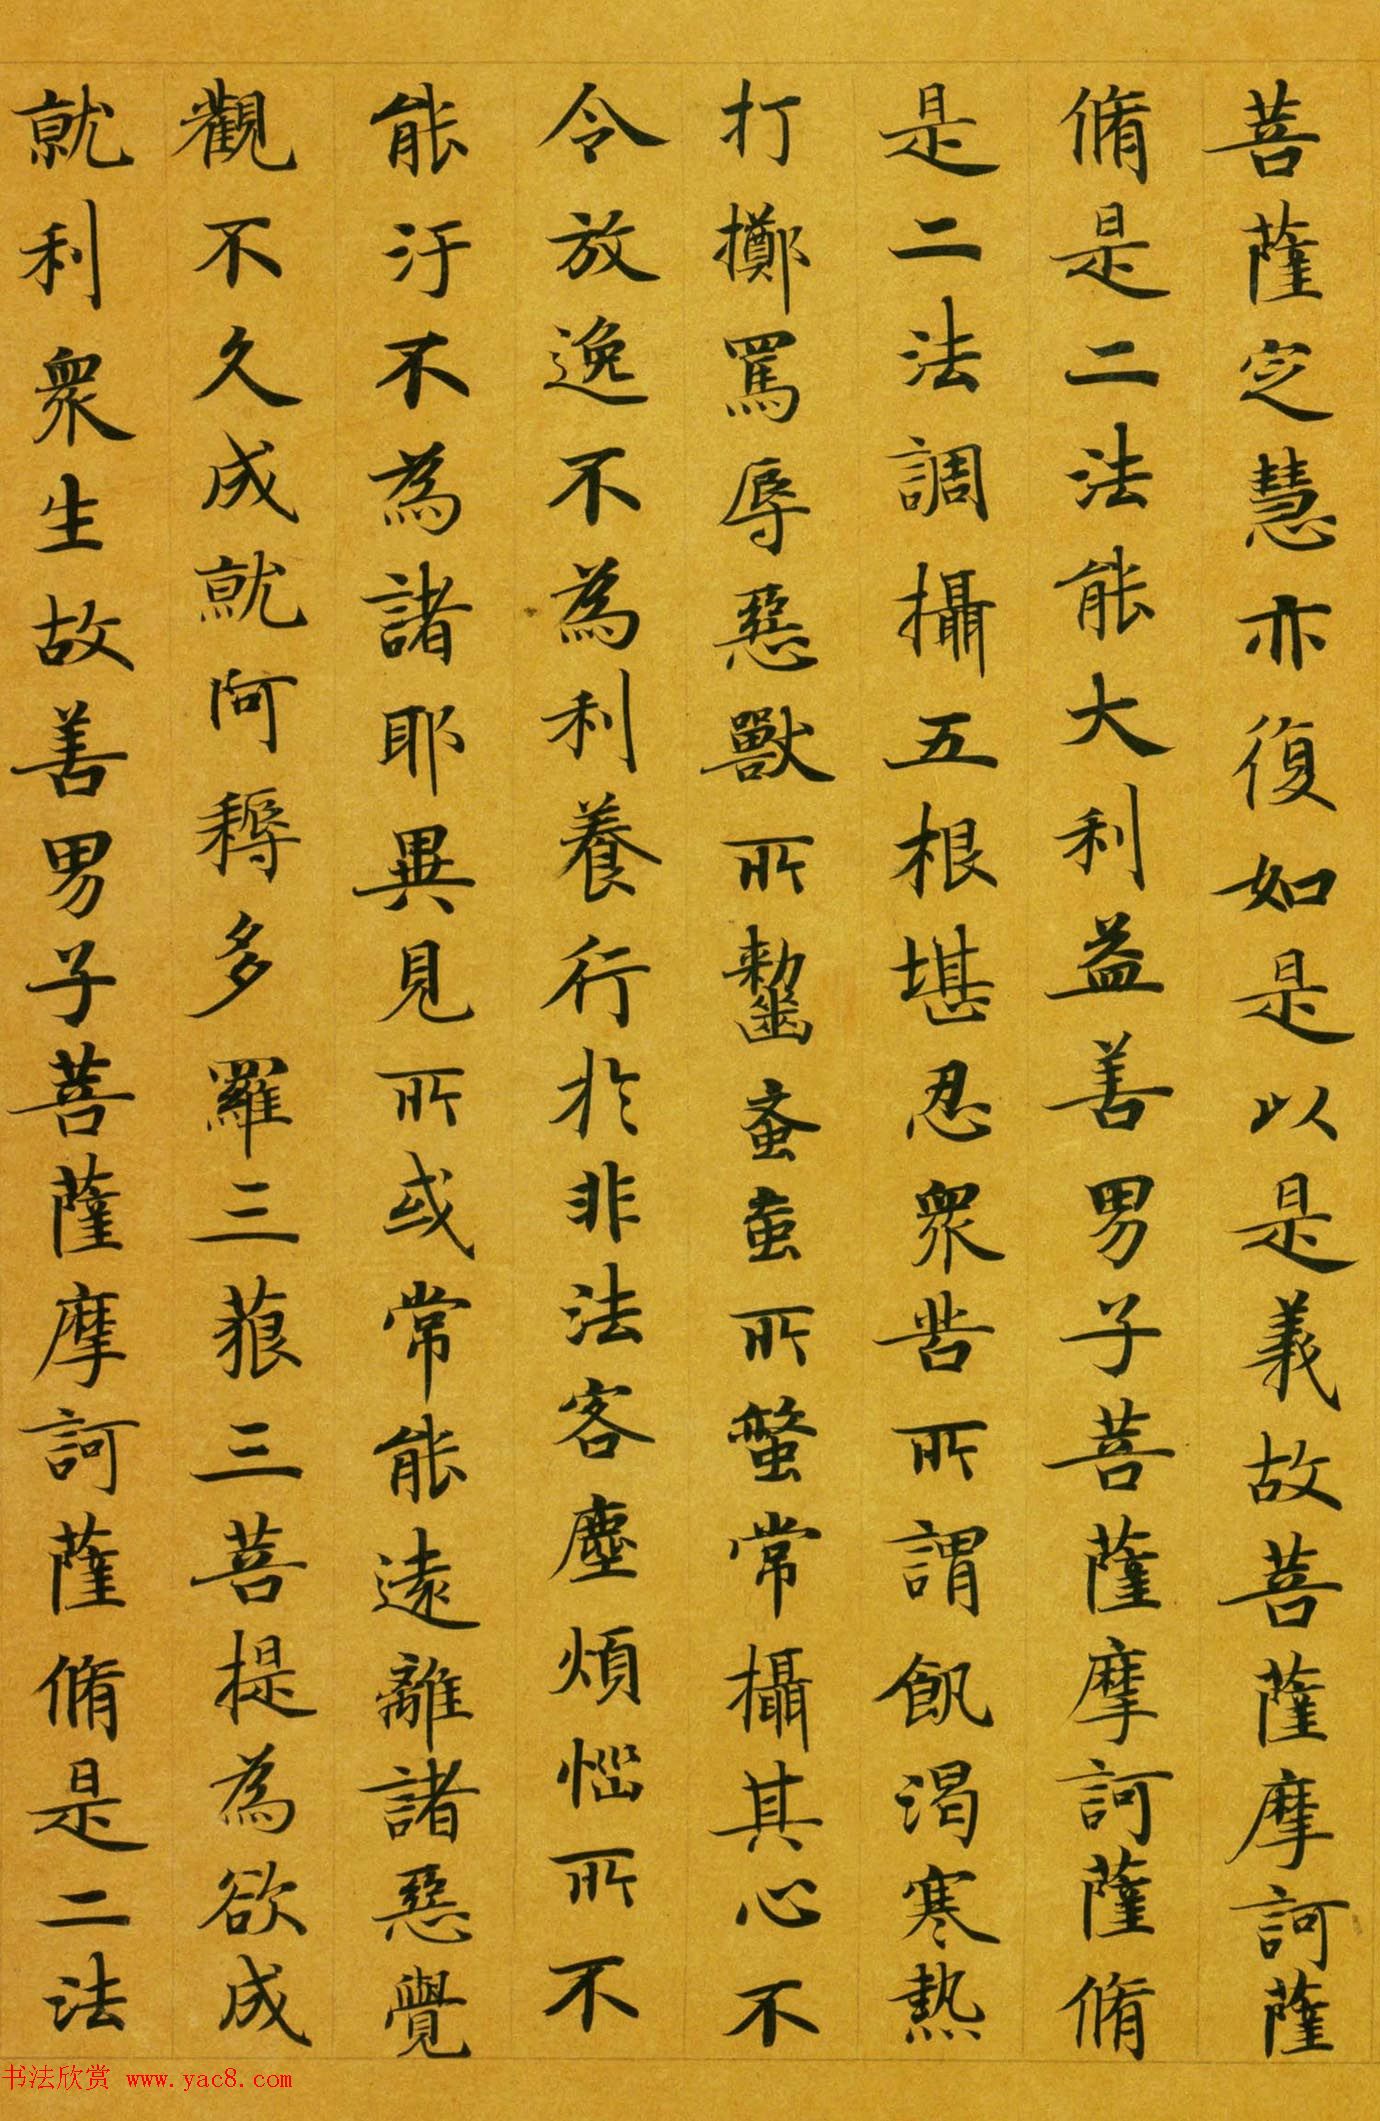 菩薩定慧亦復如是以是義故菩薩摩訶薩
脩是二法能大利益善男子菩薩摩訶薩脩
是二法調攝五根堪忍衆苦所謂飢渴寒熱
打擲罵辱惡獸所齧蚉䖟所螫常攝其心不
令放逸不為利養行於非法客塵煩惱所不
能汙不為諸耶異見所或常能遠離諸惡覺
觀不久成就阿耨多羅三藐三菩提為欲成
就利衆生故善男子菩薩摩訶薩脩是二法
书法欣赏 www.yac8.com